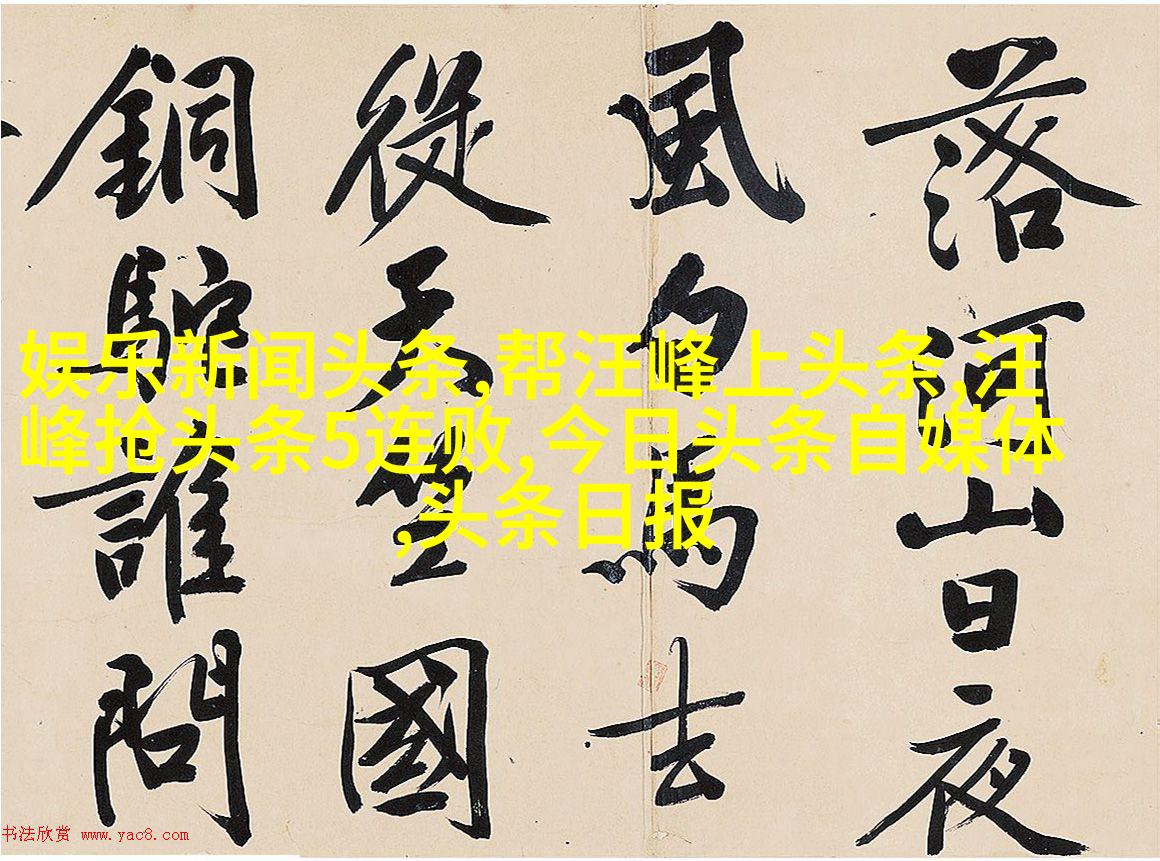 落河山日夜
風白馬去
從天竺國
銅駝誰問
娱乐新闻头条,帮汪峰上头条,汪
峰抢头条5连败,今日头条自媒体
,头条日报
书法欣赏 www.yac8.com